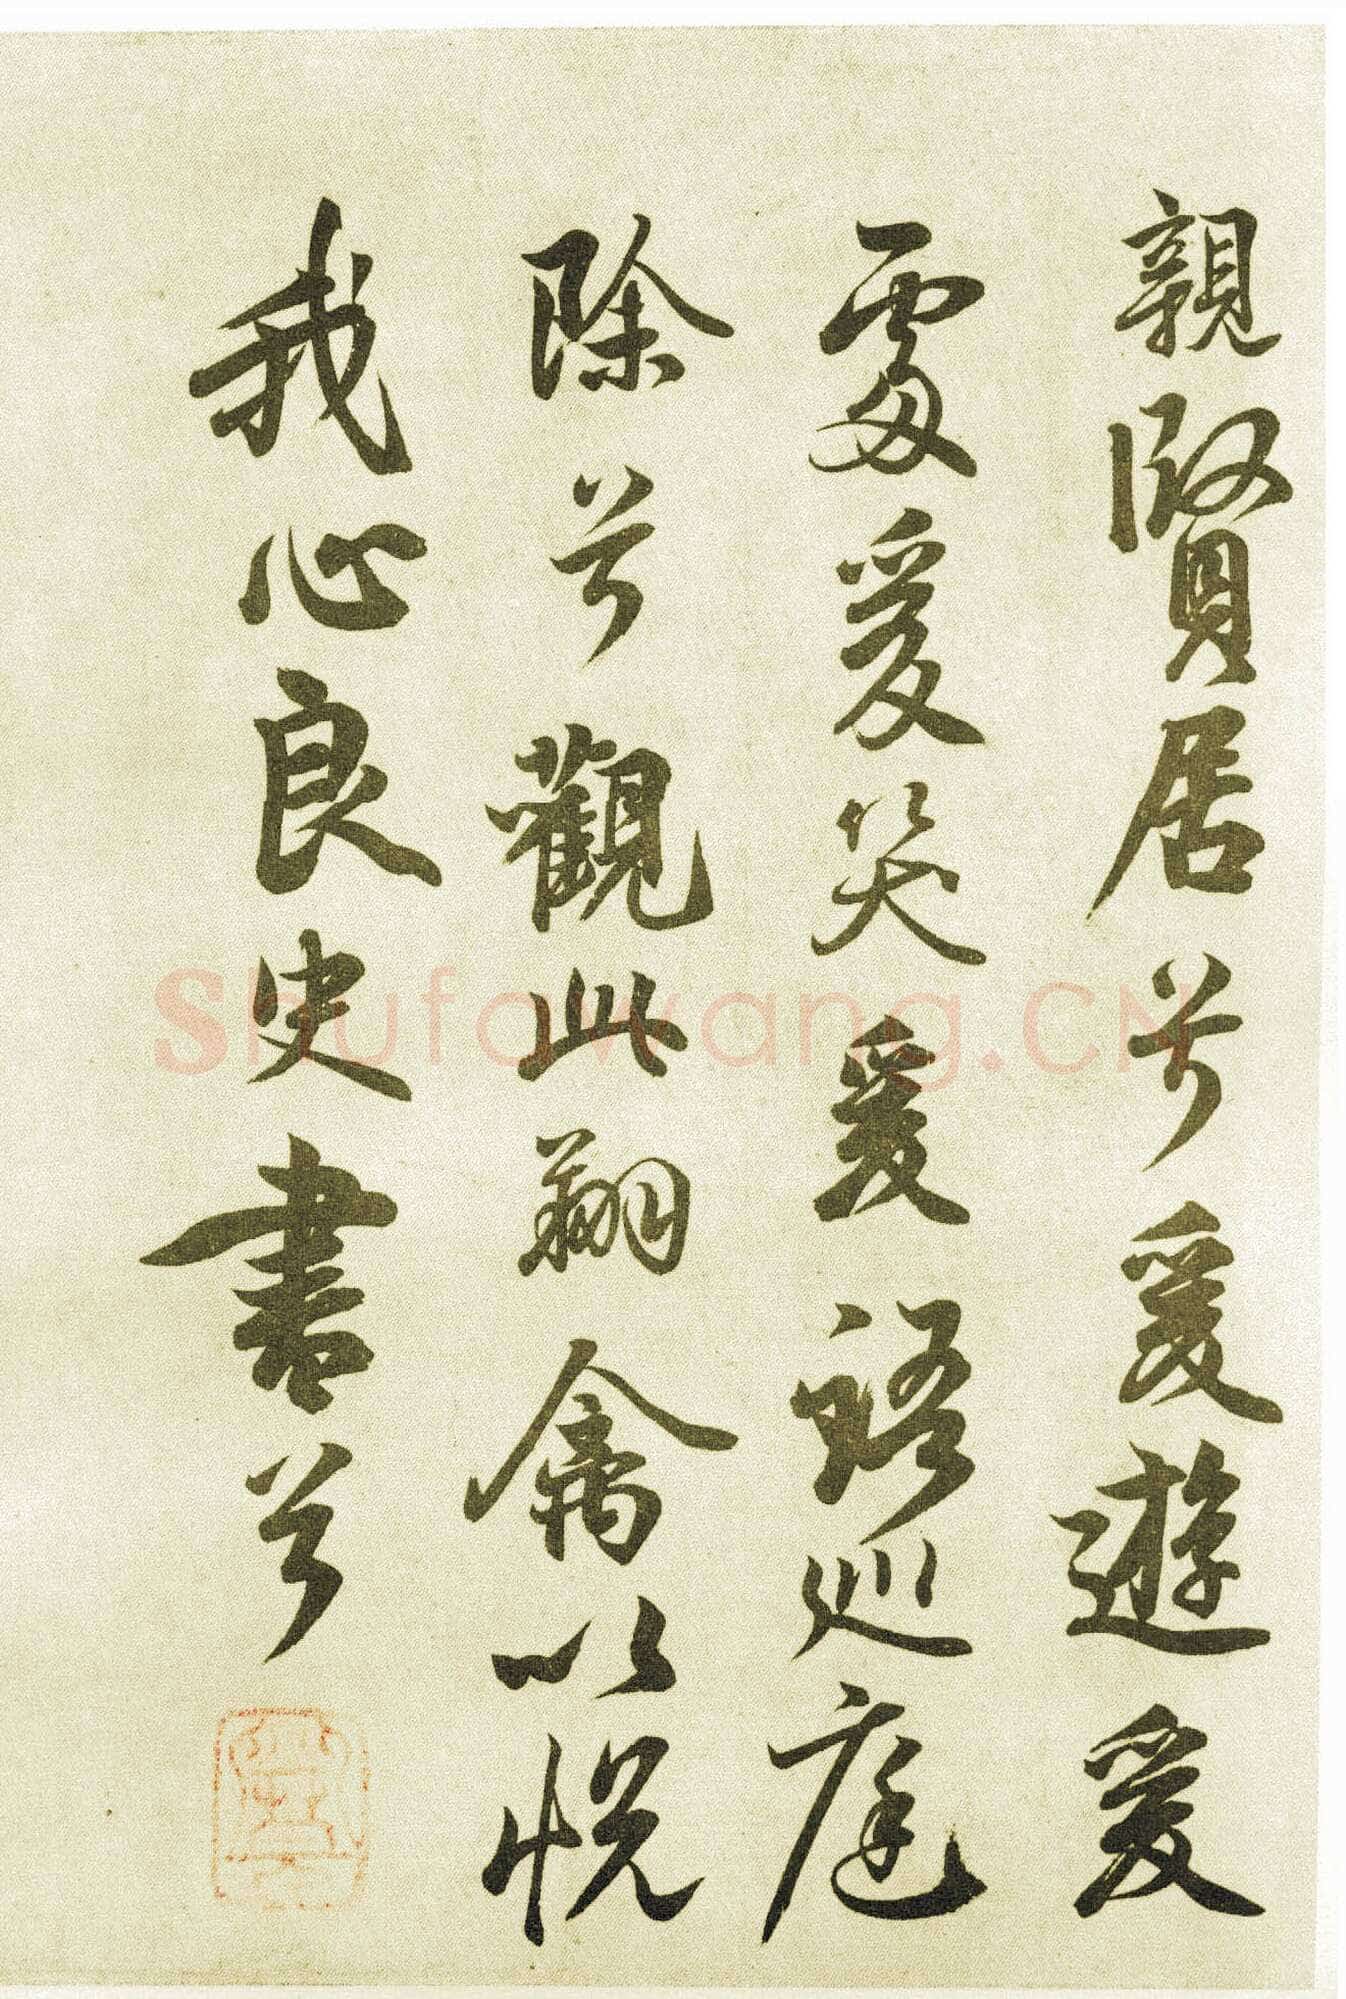 親賢居兮爰遊爰
處爰笑爰語巡庭
除兮觀此翔禽以悅
我心良史書兮
Shufawang.CN